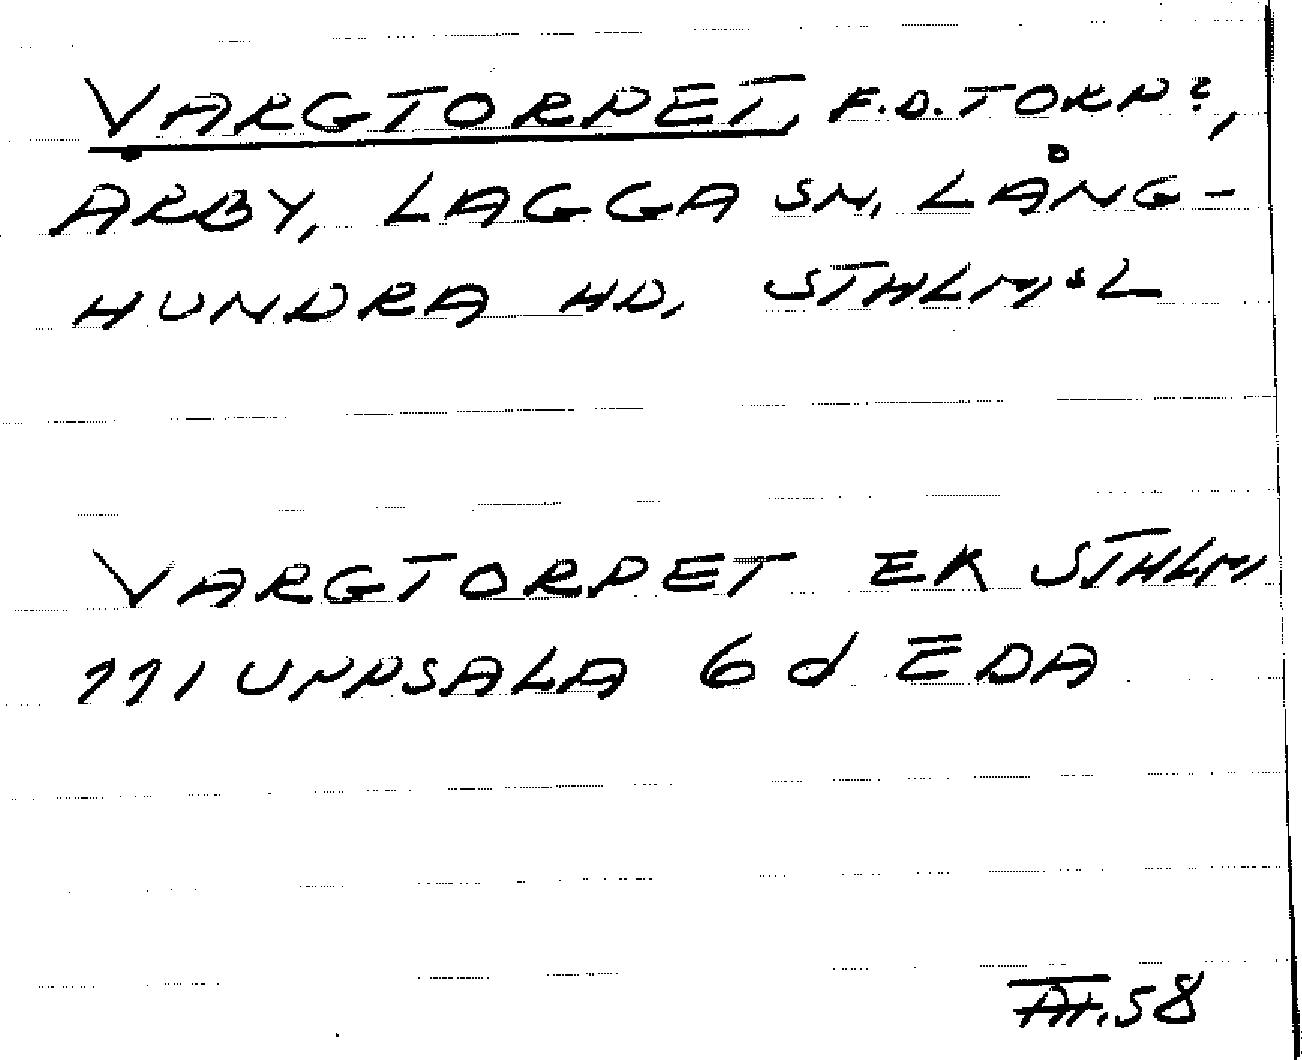 VARGTORPET, F.D. TORP?,
ÅRBY, LAGGA SN, LÅNG-
HUNDRA HD, STHLMS L
VARGTORPET EK STHLM
111 UPPSALA 6 d EDA
58